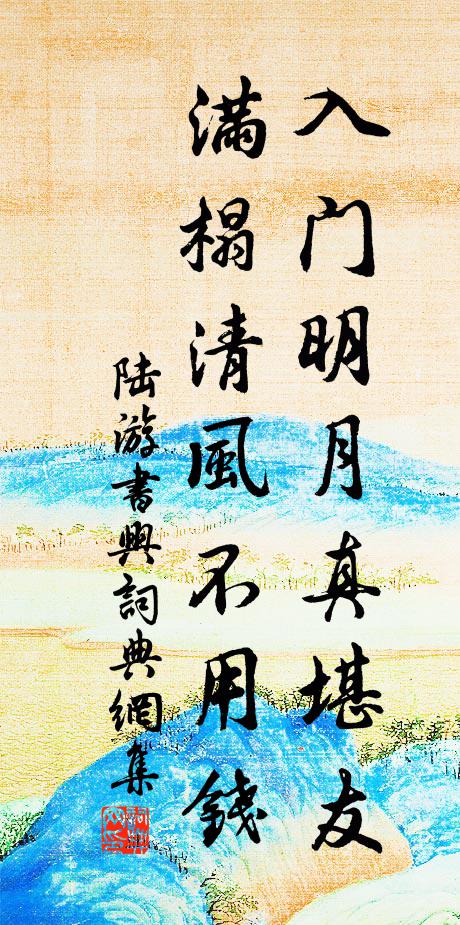 入门明月真堪友
满榻清風不用錢
陆游書興詞典網集